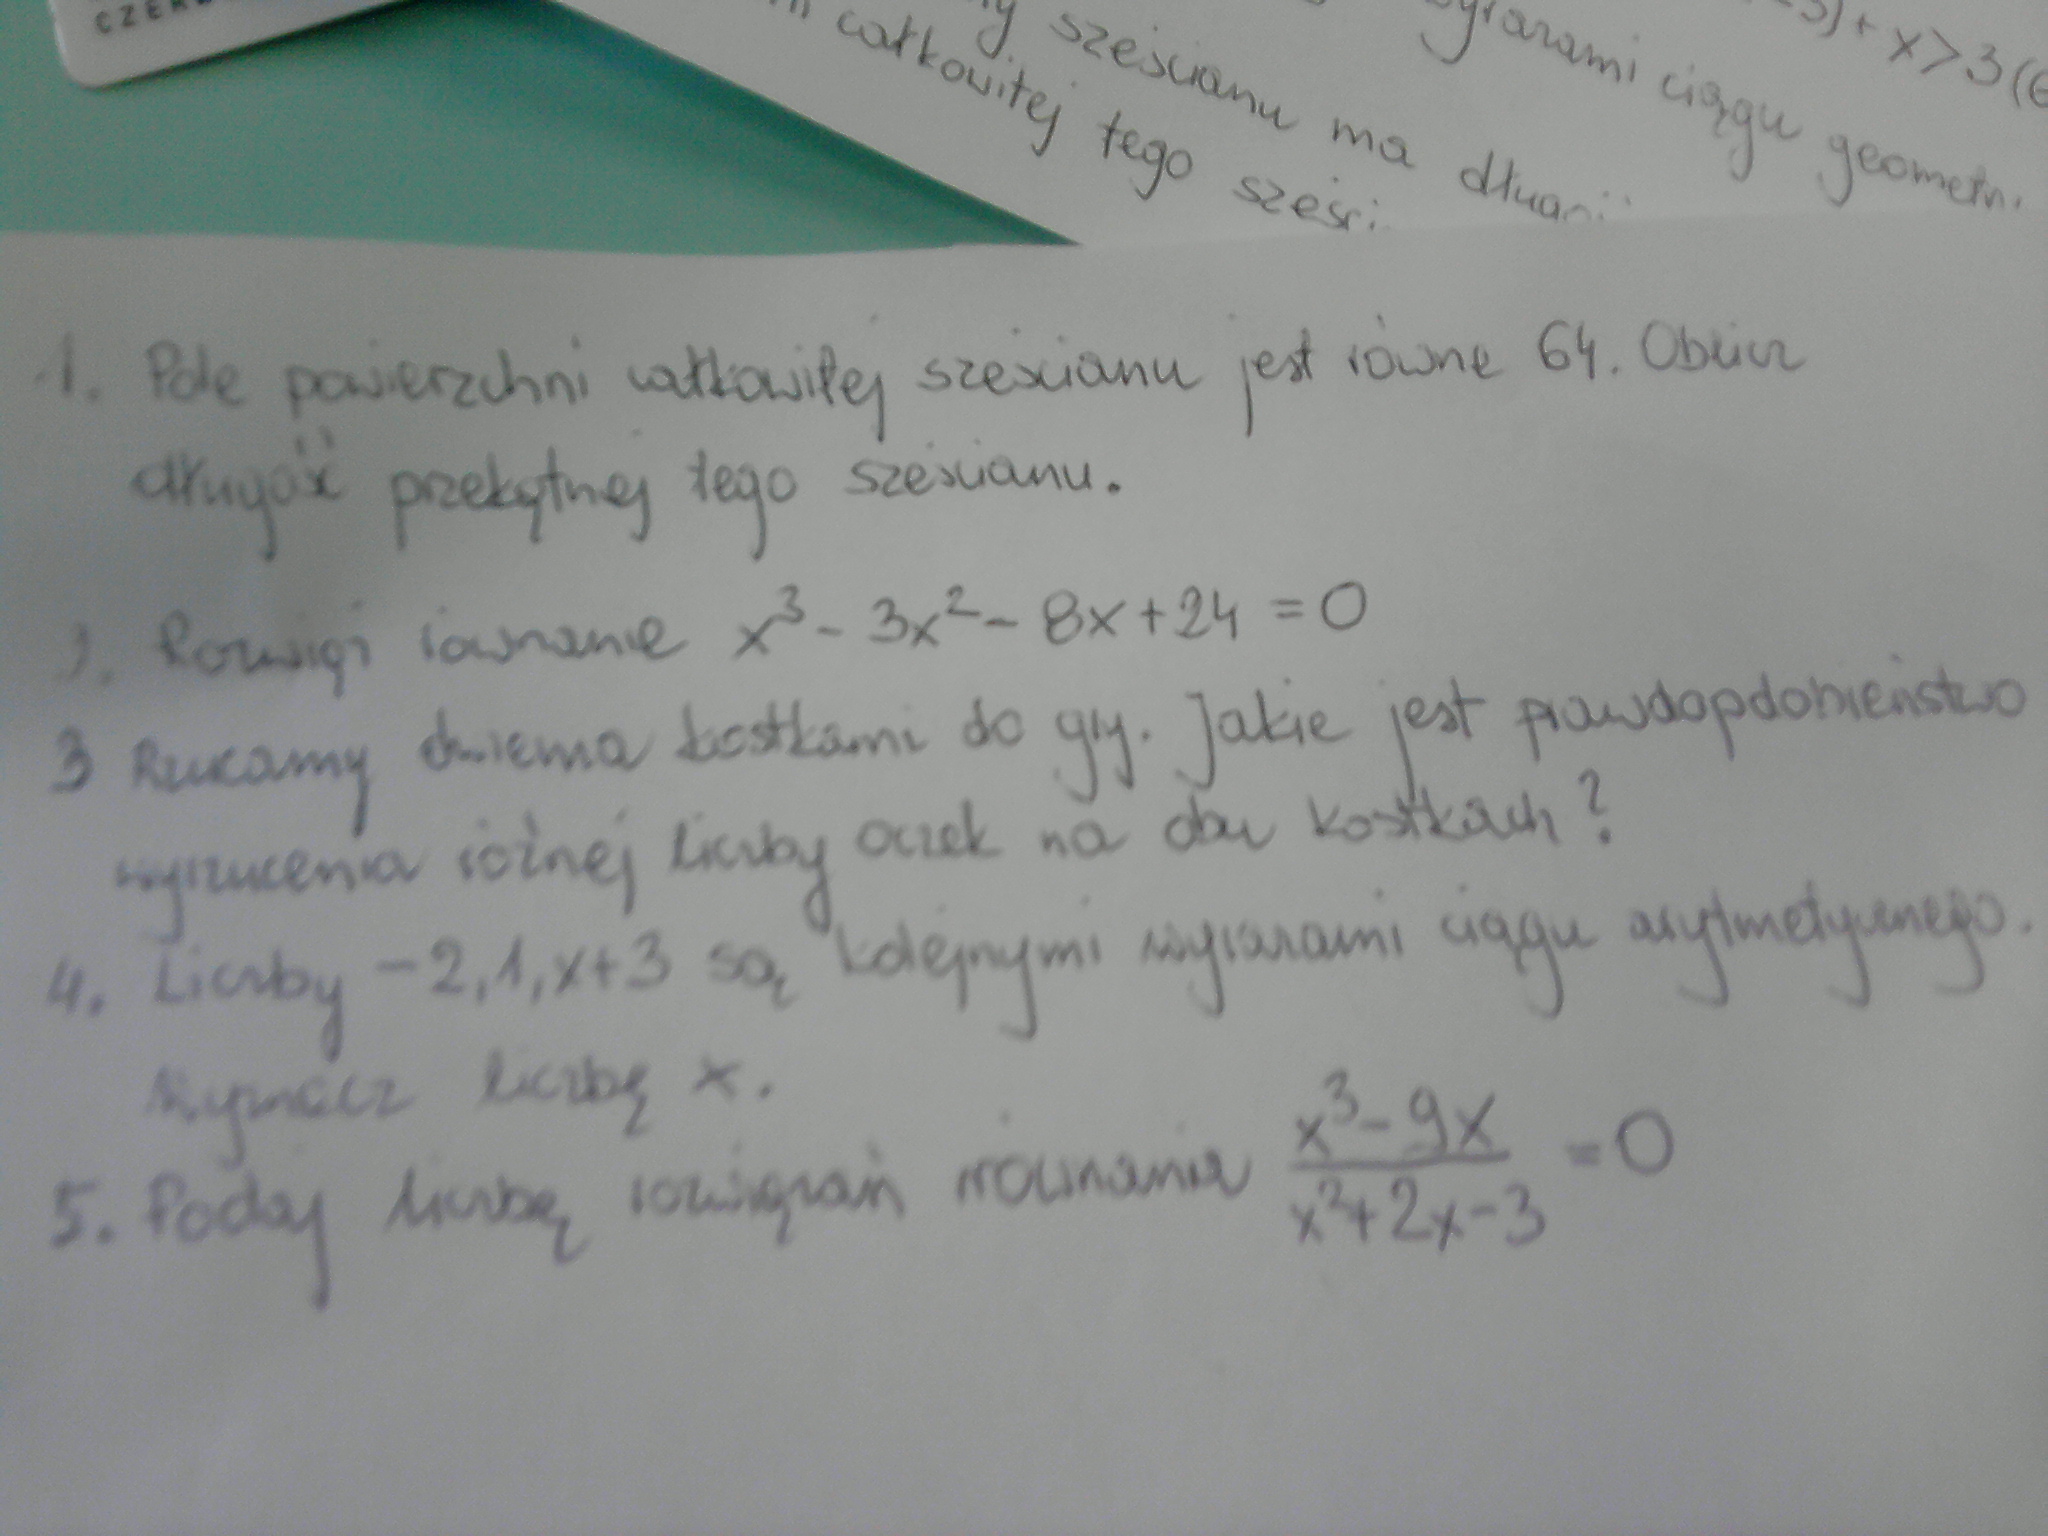 CZER
-3)+x>3(6
wyrazami ciągu geometr.
ny sześcianu ma długoś
całkowitej tego sześci
1. Pole powierzchni całkowitej sześcianu jest równe 64. Oblicz
długość przekątnej tego sześcianu.
2. Rozwiąż równanie x³-3x²-8x+24=0
3 Rzucamy dwiema kostkami do gry. Jakie jest prawdopdobieństwo
wyrzucenia różnej liczby oczek na obu kostkach?
4. Liczby -2,1,x+3 są kolejnymi wyrazami ciągu arytmetycznego.
Wyznacz liczbę x.
5. Podaj liczbę rozwiązań równania (x³-9x)/(x²+2x-3)=0